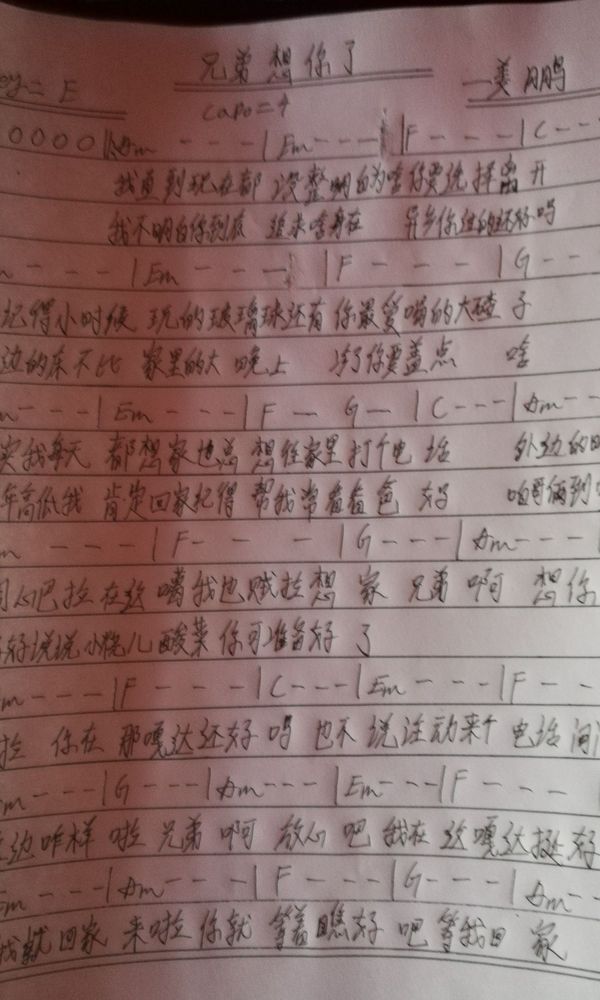 兄弟想你了
Key= E
一姜鹏
capo=4
0 0 0 0 | Am - - - | Em - - - | F - - - - | C - - -
我直到现在都 没整明白为啥你要选择离开
我不明白你到底 追求啥身在 异乡你过的还好吗
- - - - | Em - - - - | F - - - | G - -
记得小时候 玩的玻璃球还有你最爱喝的大碴子
边的床不比 家里的大 晚上 冷了你要盖点 啥
- - - | Em - - - | F - G - | C - - - | Am - - -
实我每天 都想家也总 想往家里打个电话 外边的
年高低我 肯定回家记得 帮我常看看爸 好 咱哥俩到
m - - - - | F - - - | G - - - | Am - - -
心巴拉在这 嘎我也贼拉想 家 兄弟 啊 想你
好说说小烧儿酸菜你可准备好 了
m - - - | F - - - | C - - - | Em - - - | F - -
拉 你在 那嘎达还好吗 也不 说主动来个 电话
m - - - | G - - - | Am - - - | Em - - - | F - - -
边咋样 啦 兄弟 啊 放心 吧 我在 这嘎达挺好
Em - - - | Am - - - | F - - - | G - - - | Am - -
我就回家 来啦你就 等着瞧好 吧 等我回 家